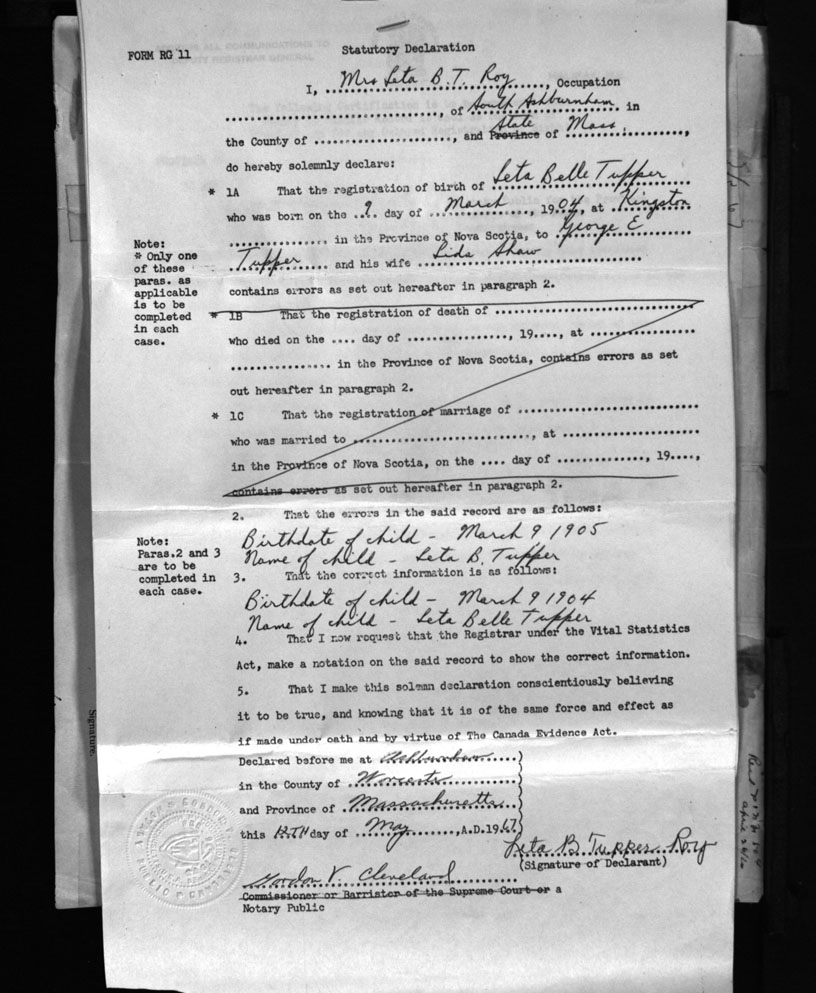 FORM RG 11
Statutory Declaration
I, Mrs Leta B. T. Roy, Occupation
, of South Ashburnham in
the County of , and Province State of Mass. ,
do hereby solemnly declare:
* 1A That the registration of birth of Leta Belle Tupper
who was born on the 9 day of March, 1904, at Kingston
in the Province of Nova Scotia, to George E
Tupper and his wife Lida Shaw
contains errors as set out hereafter in paragraph 2.
Note:
* Only one
of these
paras. as
applicable
is to be
completed
in each
case.
* 1B That the registration of death of
who died on the .... day of , 19...., at
in the Province of Nova Scotia, contains errors as set
out hereafter in paragraph 2.
* 1C That the registration of marriage of
who was married to , at
in the Province of Nova Scotia, on the .... day of , 19....,
contains errors as set out hereafter in paragraph 2.
2. That the errors in the said record are as follows:
Birthdate of child - March 9 1905
Name of child - Leta B. Tupper
Note:
Paras.2 and 3
are to be
completed in
each case.
3. That the correct information is as follows:
Birthdate of child - March 9 1904
Name of child - Leta Belle Tupper
4. That I now request that the Registrar under the Vital Statistics
Act, make a notation on the said record to show the correct information.
5. That I make this solemn declaration conscientiously believing
it to be true, and knowing that it is of the same force and effect as
if made under oath and by virtue of The Canada Evidence Act.
Declared before me at Ashburnham
in the County of Worcester
and Province of Massachusetts
this 12TH day of May, A.D. 1967
Leta B Tupper Roy
(Signature of Declarant)
Gordon V. Cleveland
Commissioner or Barrister of the Supreme Court or a
Notary Public
Signature.